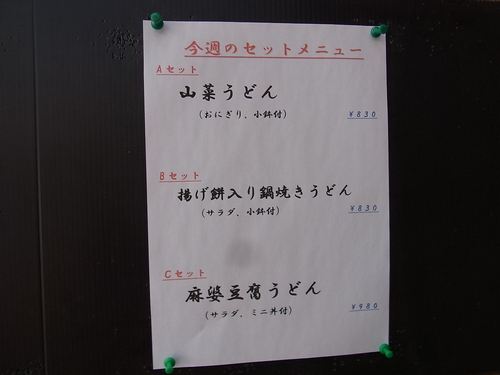 今週のセットメニュー
Aセット
山菜うどん
(おにぎり、小鉢付) ¥830
Bセット
揚げ餅入り鍋焼きうどん
(サラダ、小鉢付) ¥830
Cセット
麻婆豆腐うどん
(サラダ、ミニ丼付) ¥980